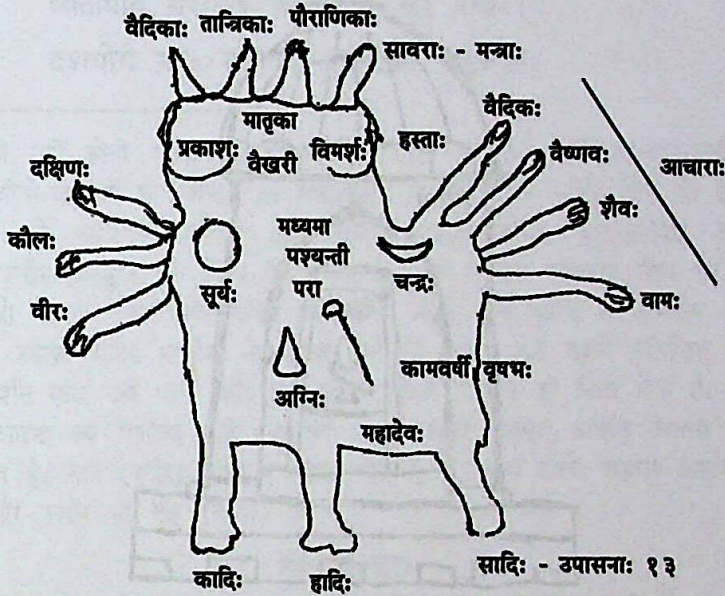 वैदिकाः तान्त्रिकाः पौराणिकाः
सावराः - मन्त्राः
मातृका
प्रकाशः वैखरी विमर्शः
हस्ताः
वैदिकः
वैष्णवः
आचाराः
शैवः
वामः
दक्षिणः
कौलः
वीरः
मध्यमा
पश्यन्ती
परा
सूर्यः
चन्द्रः
अग्निः
कामवर्षी वृषभः
महादेवः
कादिः हादिः
सादिः - उपासनाः १३